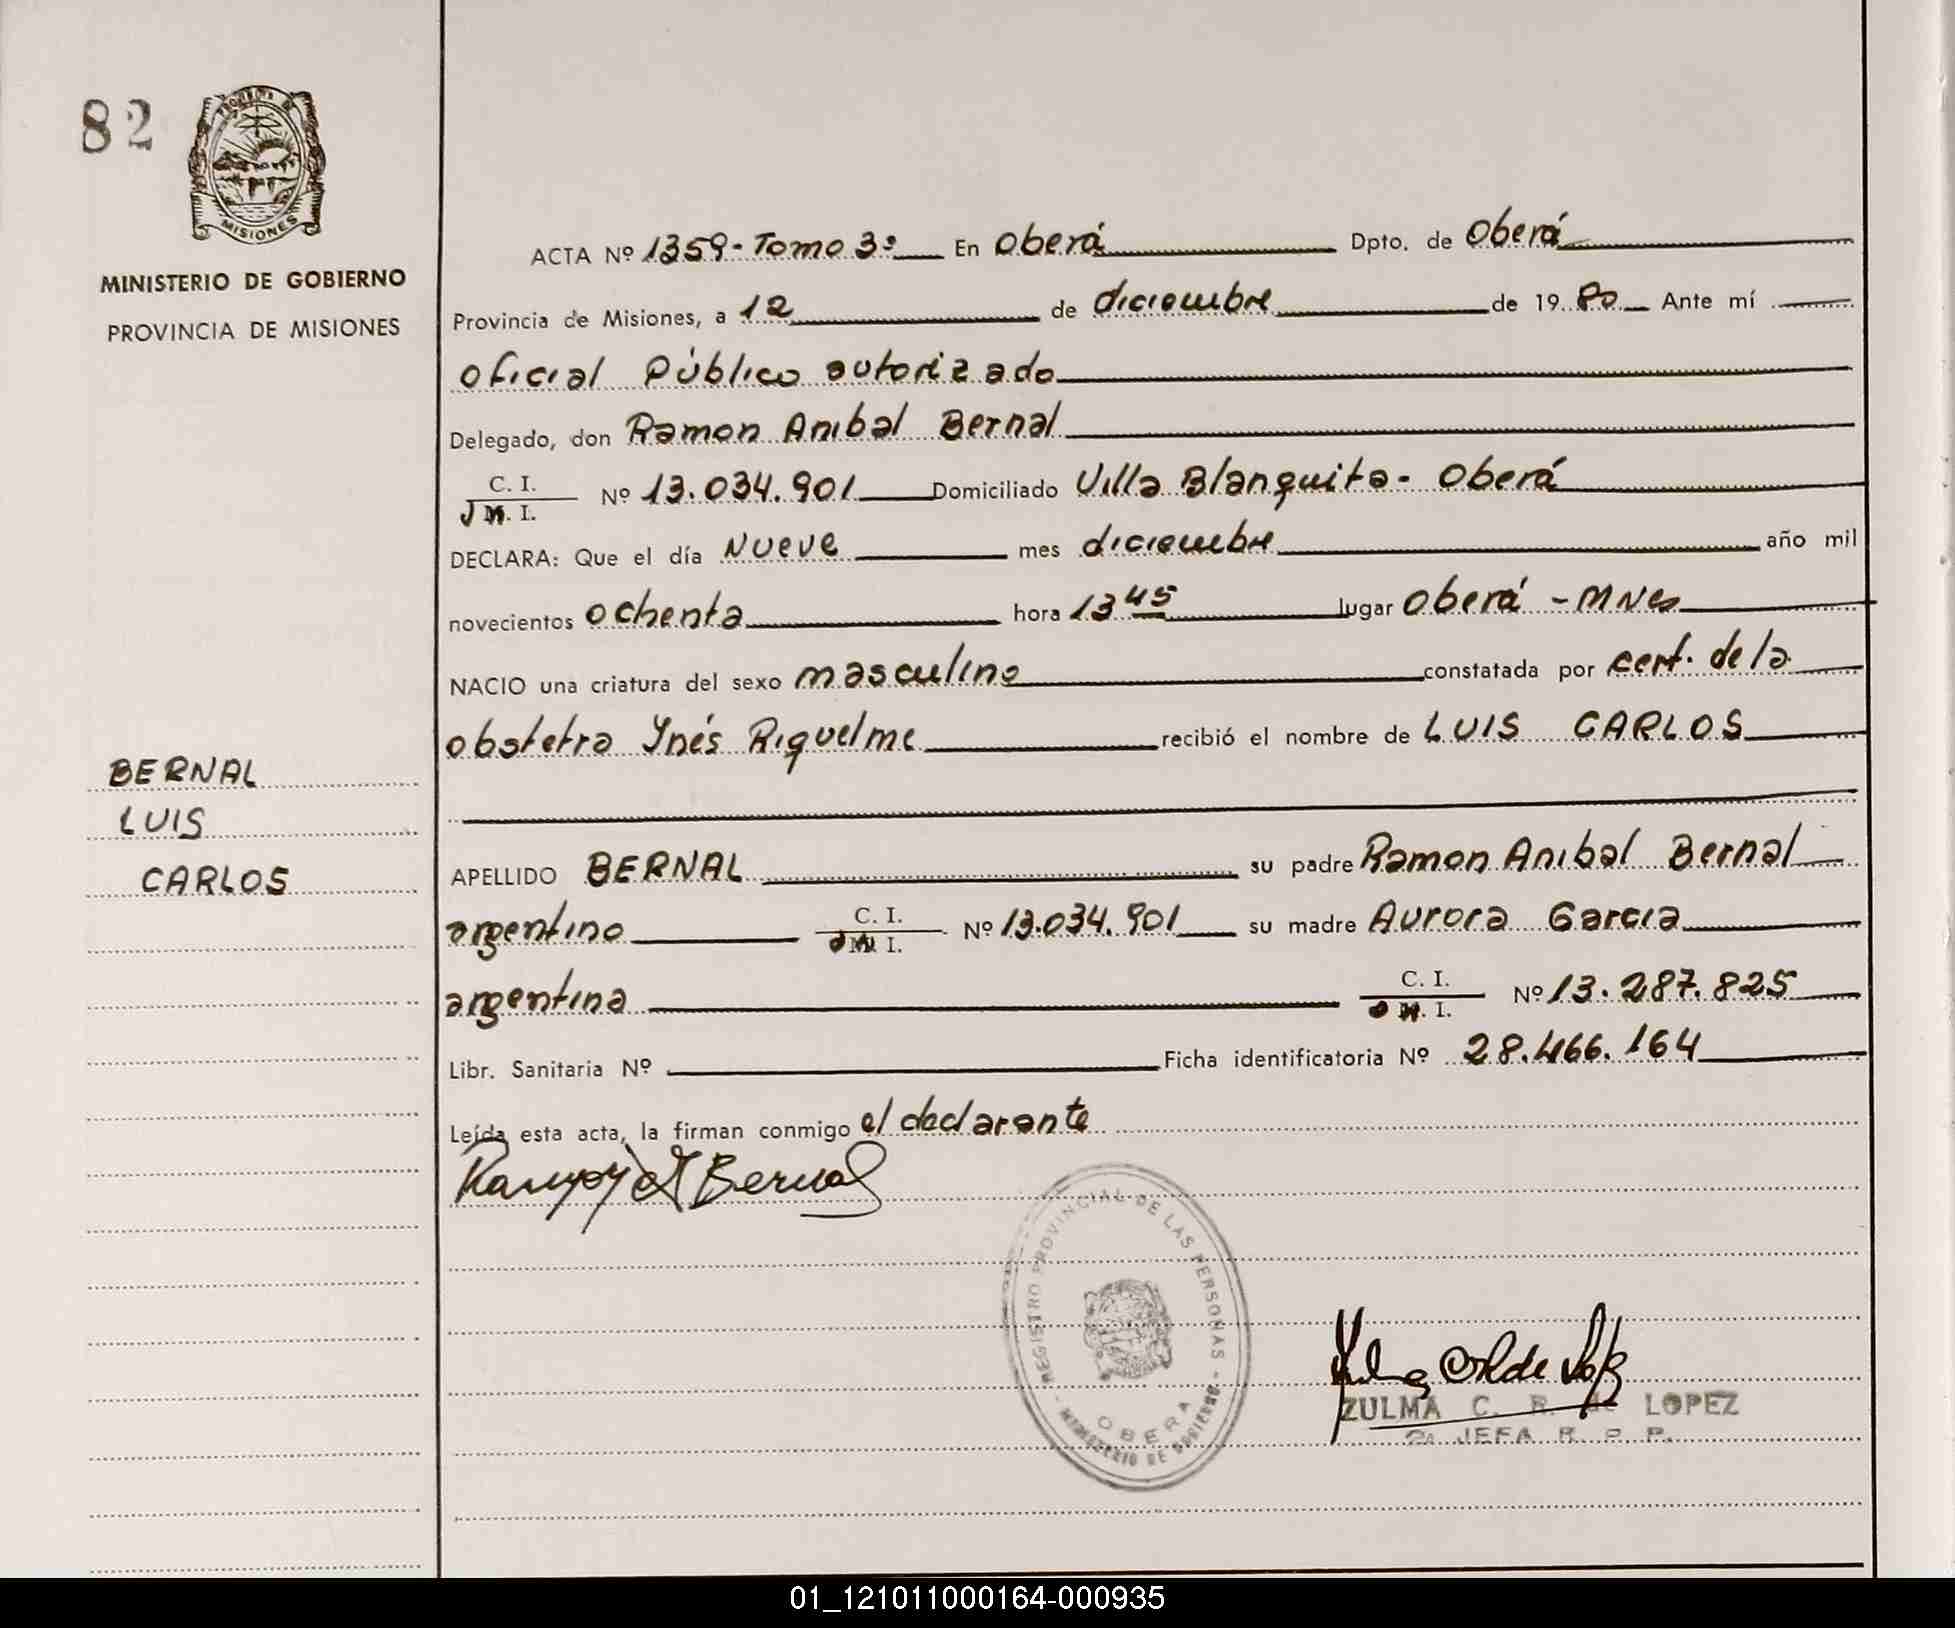 82
PROVINCIA DE
MISIONES
MINISTERIO DE GOBIERNO
PROVINCIA DE MISIONES
BERNAL
LUIS
CARLOS
ACTA Nº 1359 - Tomo 3º En Oberá Dpto. de Oberá
Provincia de Misiones, a 12 de diciembre de 19 80 Ante mí
Oficial Público autorizado
Delegado, don Ramon Anibal Bernal
C. I.
M. I. Nº 13.034.901 Domiciliado Villa Blanquita - Oberá
DECLARA: Que el día Nueve mes diciembre año mil
novecientos ochenta hora 13 45 lugar Oberá - MNes
NACIO una criatura del sexo masculino constatada por cert. de la
obstetra Inés Riquelme recibió el nombre de LUIS CARLOS
APELLIDO BERNAL su padre Ramon Anibal Bernal
argentino C. I. M. I. Nº 13.034.901 su madre Aurora Garcia
argentina C. I. M. I. Nº 13.287.825
Libr. Sanitaria Nº Ficha identificatoria Nº 28.466.164
Leída esta acta, la firman conmigo el declarante
Bernal
REGISTRO PROVINCIAL DE LAS PERSONAS - MINISTERIO DE GOBIERNO -
OBERA
ZULMA C. R. de LOPEZ
2a JEFA R. P. P.
01_121011000164-000935